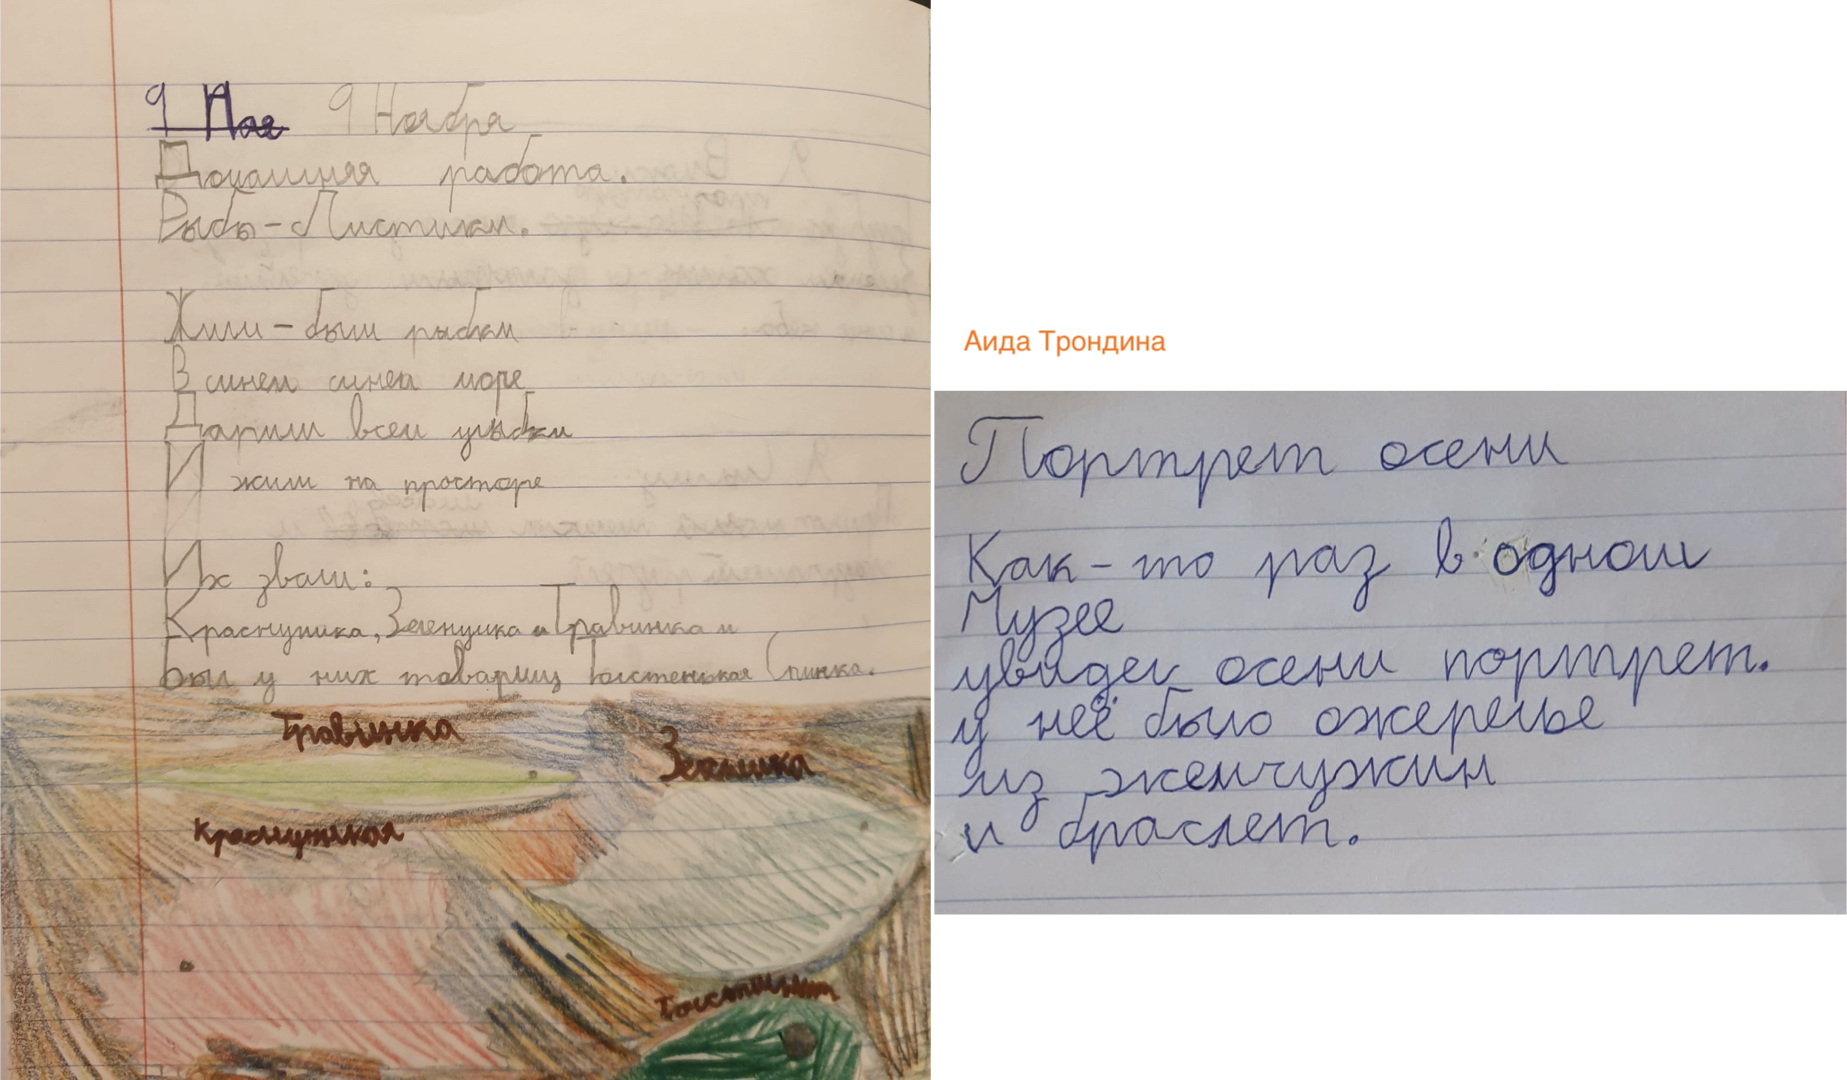 9 Мая 9 Ноября
Домашняя работа.
Рыбы-Листики.
Жили-были рыбки
В синем синем море
Дарили всем улыбки
И жили на просторе
Их звали:
Краснушка, Зеленушка и Травинка и
Был у них товарищ Толстенькая Спинка.
Травинка
Зеленушка
Краснушкая
Аида Трондина
Портрет осени
Как-то раз в одном
Музее
увидел осени портрет.
у неё было ожерелье
из жемчужин
и браслет.